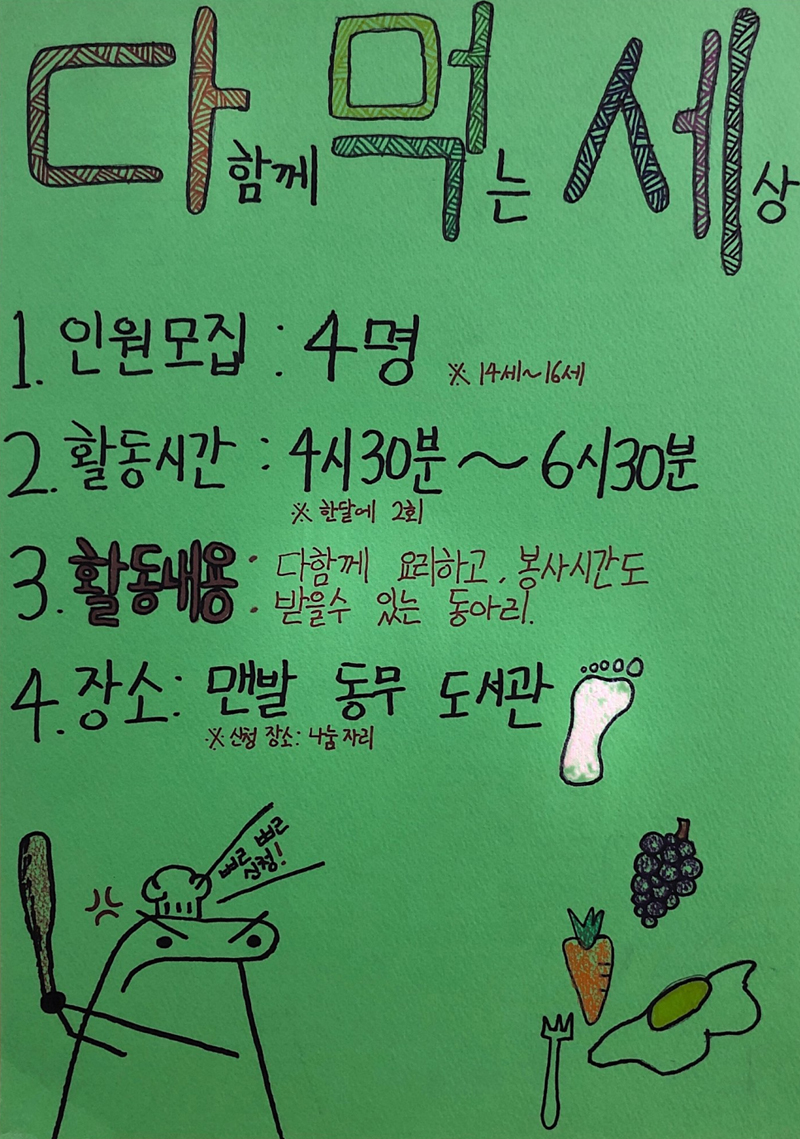 다함께 먹는 세상
1. 인원모집 : 4명 ※ 14세~16세
2. 활동시간 : 4시30분 ~ 6시30분
※ 한달에 2회
3. 활동내용 : 다함께 요리하고, 봉사시간도
받을수 있는 동아리.
4. 장소: 맨발 동무 도서관
※ 신청 장소: 나눔자리
빠르 빠르
신청!